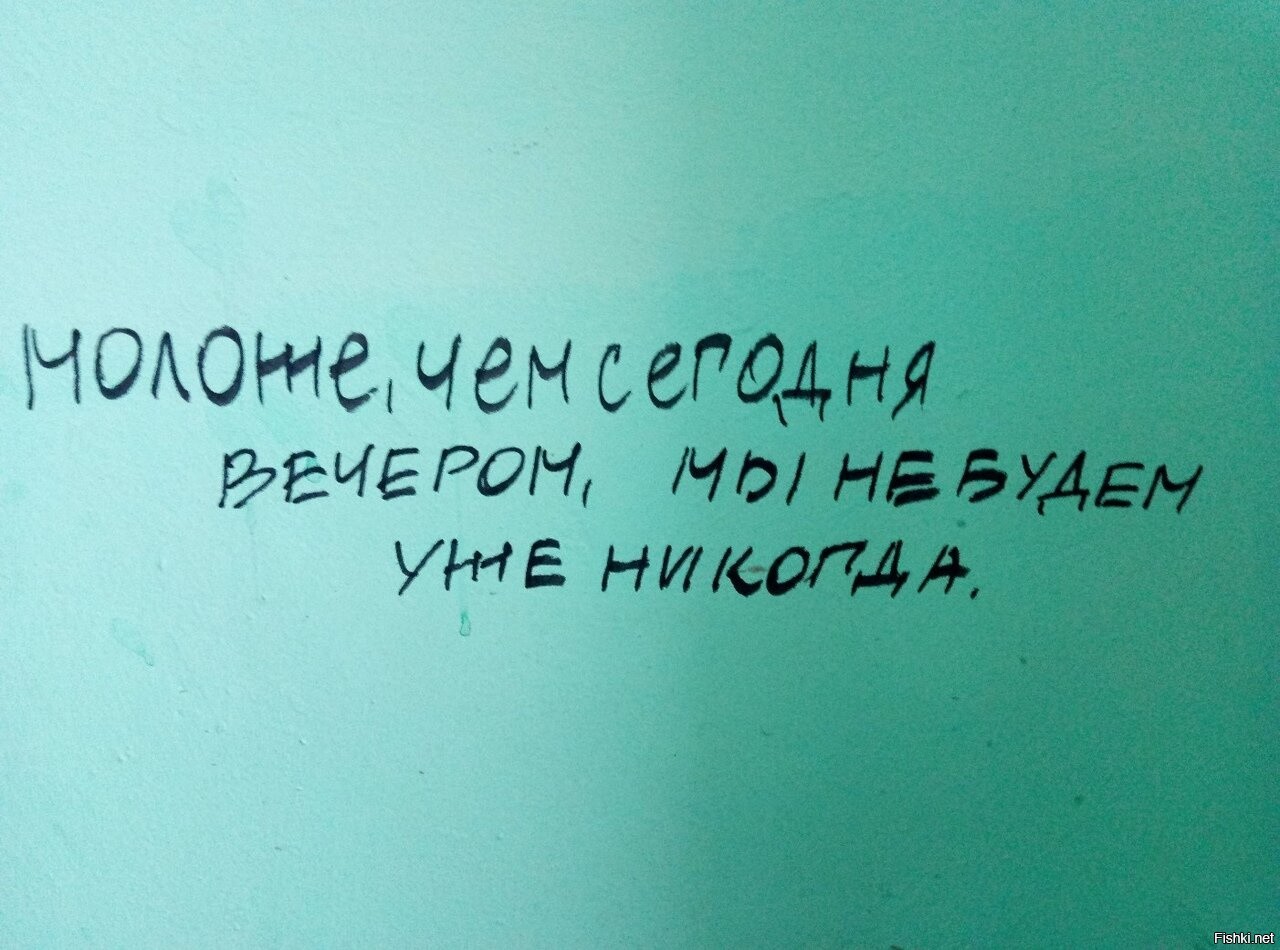 Моложе, чем сегодня
ВЕЧЕРОМ, МЫ НЕ БУДЕМ
УЖЕ НИКОГДА.
Fishki.net